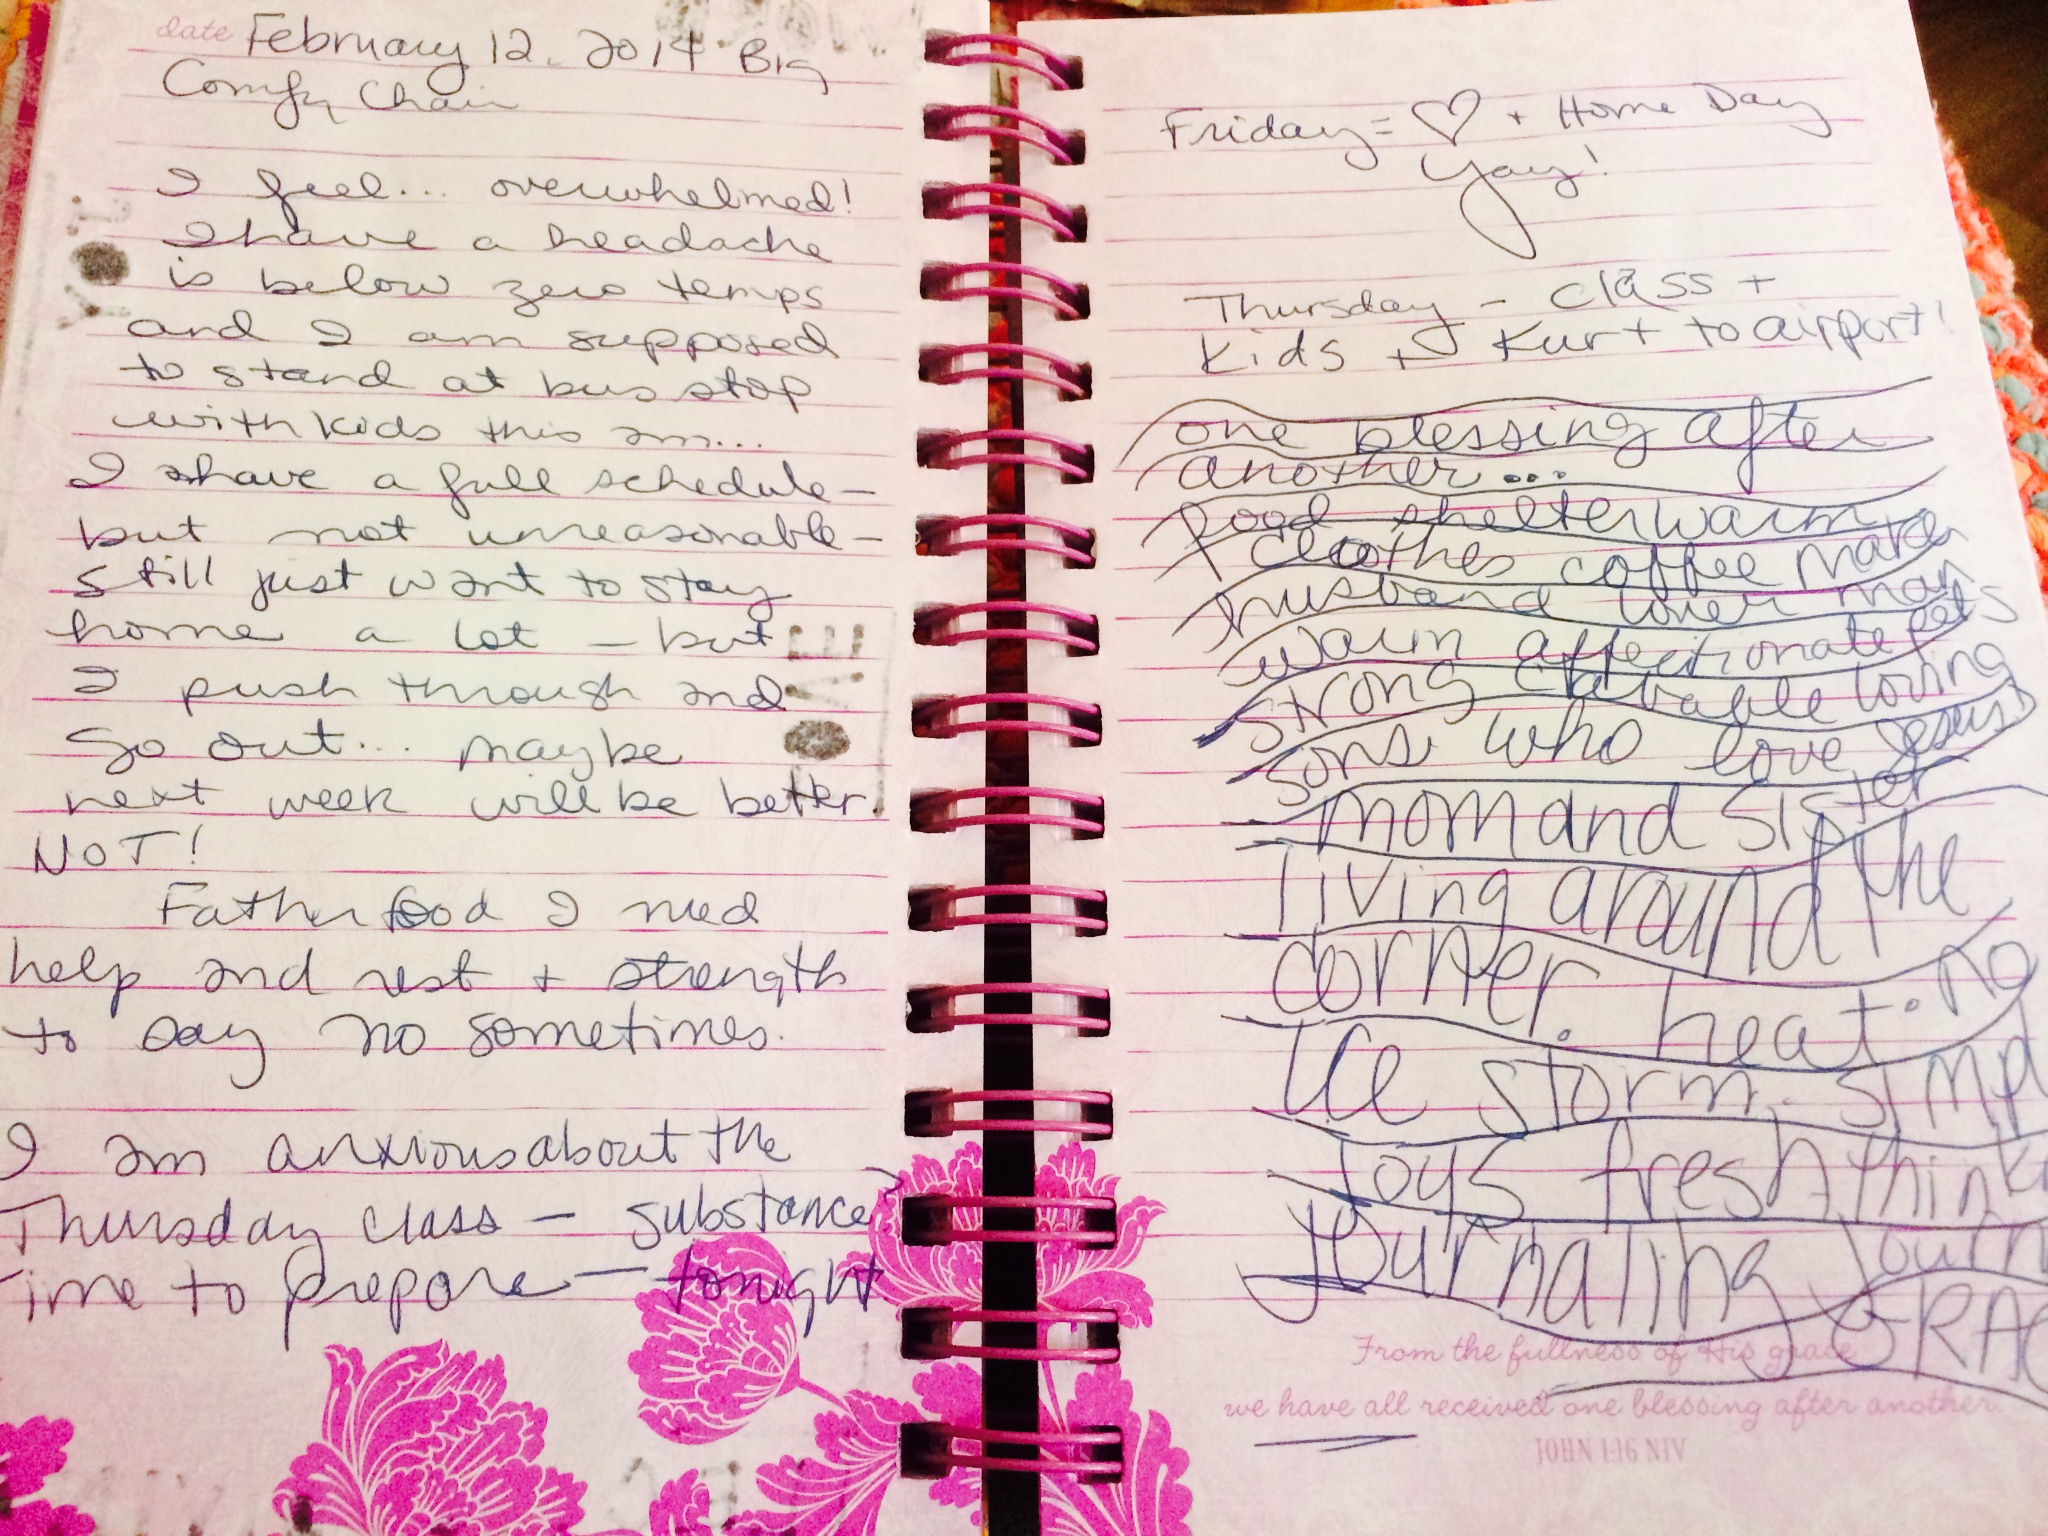 date February 12, 2014 Big
Comfy Chair
I feel... overwhelmed!
I have a headache
is below zero temps
and I am supposed
to stand at bus stop
with kids this am...
I have a full schedule -
but not unreasonable -
still just want to stay
home a lot - but
I push through and
go out... maybe
next week will be better.
NOT!
Father God I need
help and rest + strength
to say no sometimes.
I am anxious about the
Thursday class - substance
time to prepare - tonight
JOY
LOVE
Friday = ♡ + Home Day
Yay!
Thursday - class +
kids + Kurt to airport!
one blessing after
another...
food shelter warm
clothes coffee maker
husband lover man
warm affectionate pets
strong capable loving
sons who love Jesus!
mom and sister
living around the
corner. heat. no
ice storm. simpl
joys fresh think
journaling journ
GRAC
From the fullness of His grace
we have all received one blessing after another.
JOHN 1:16 NIV